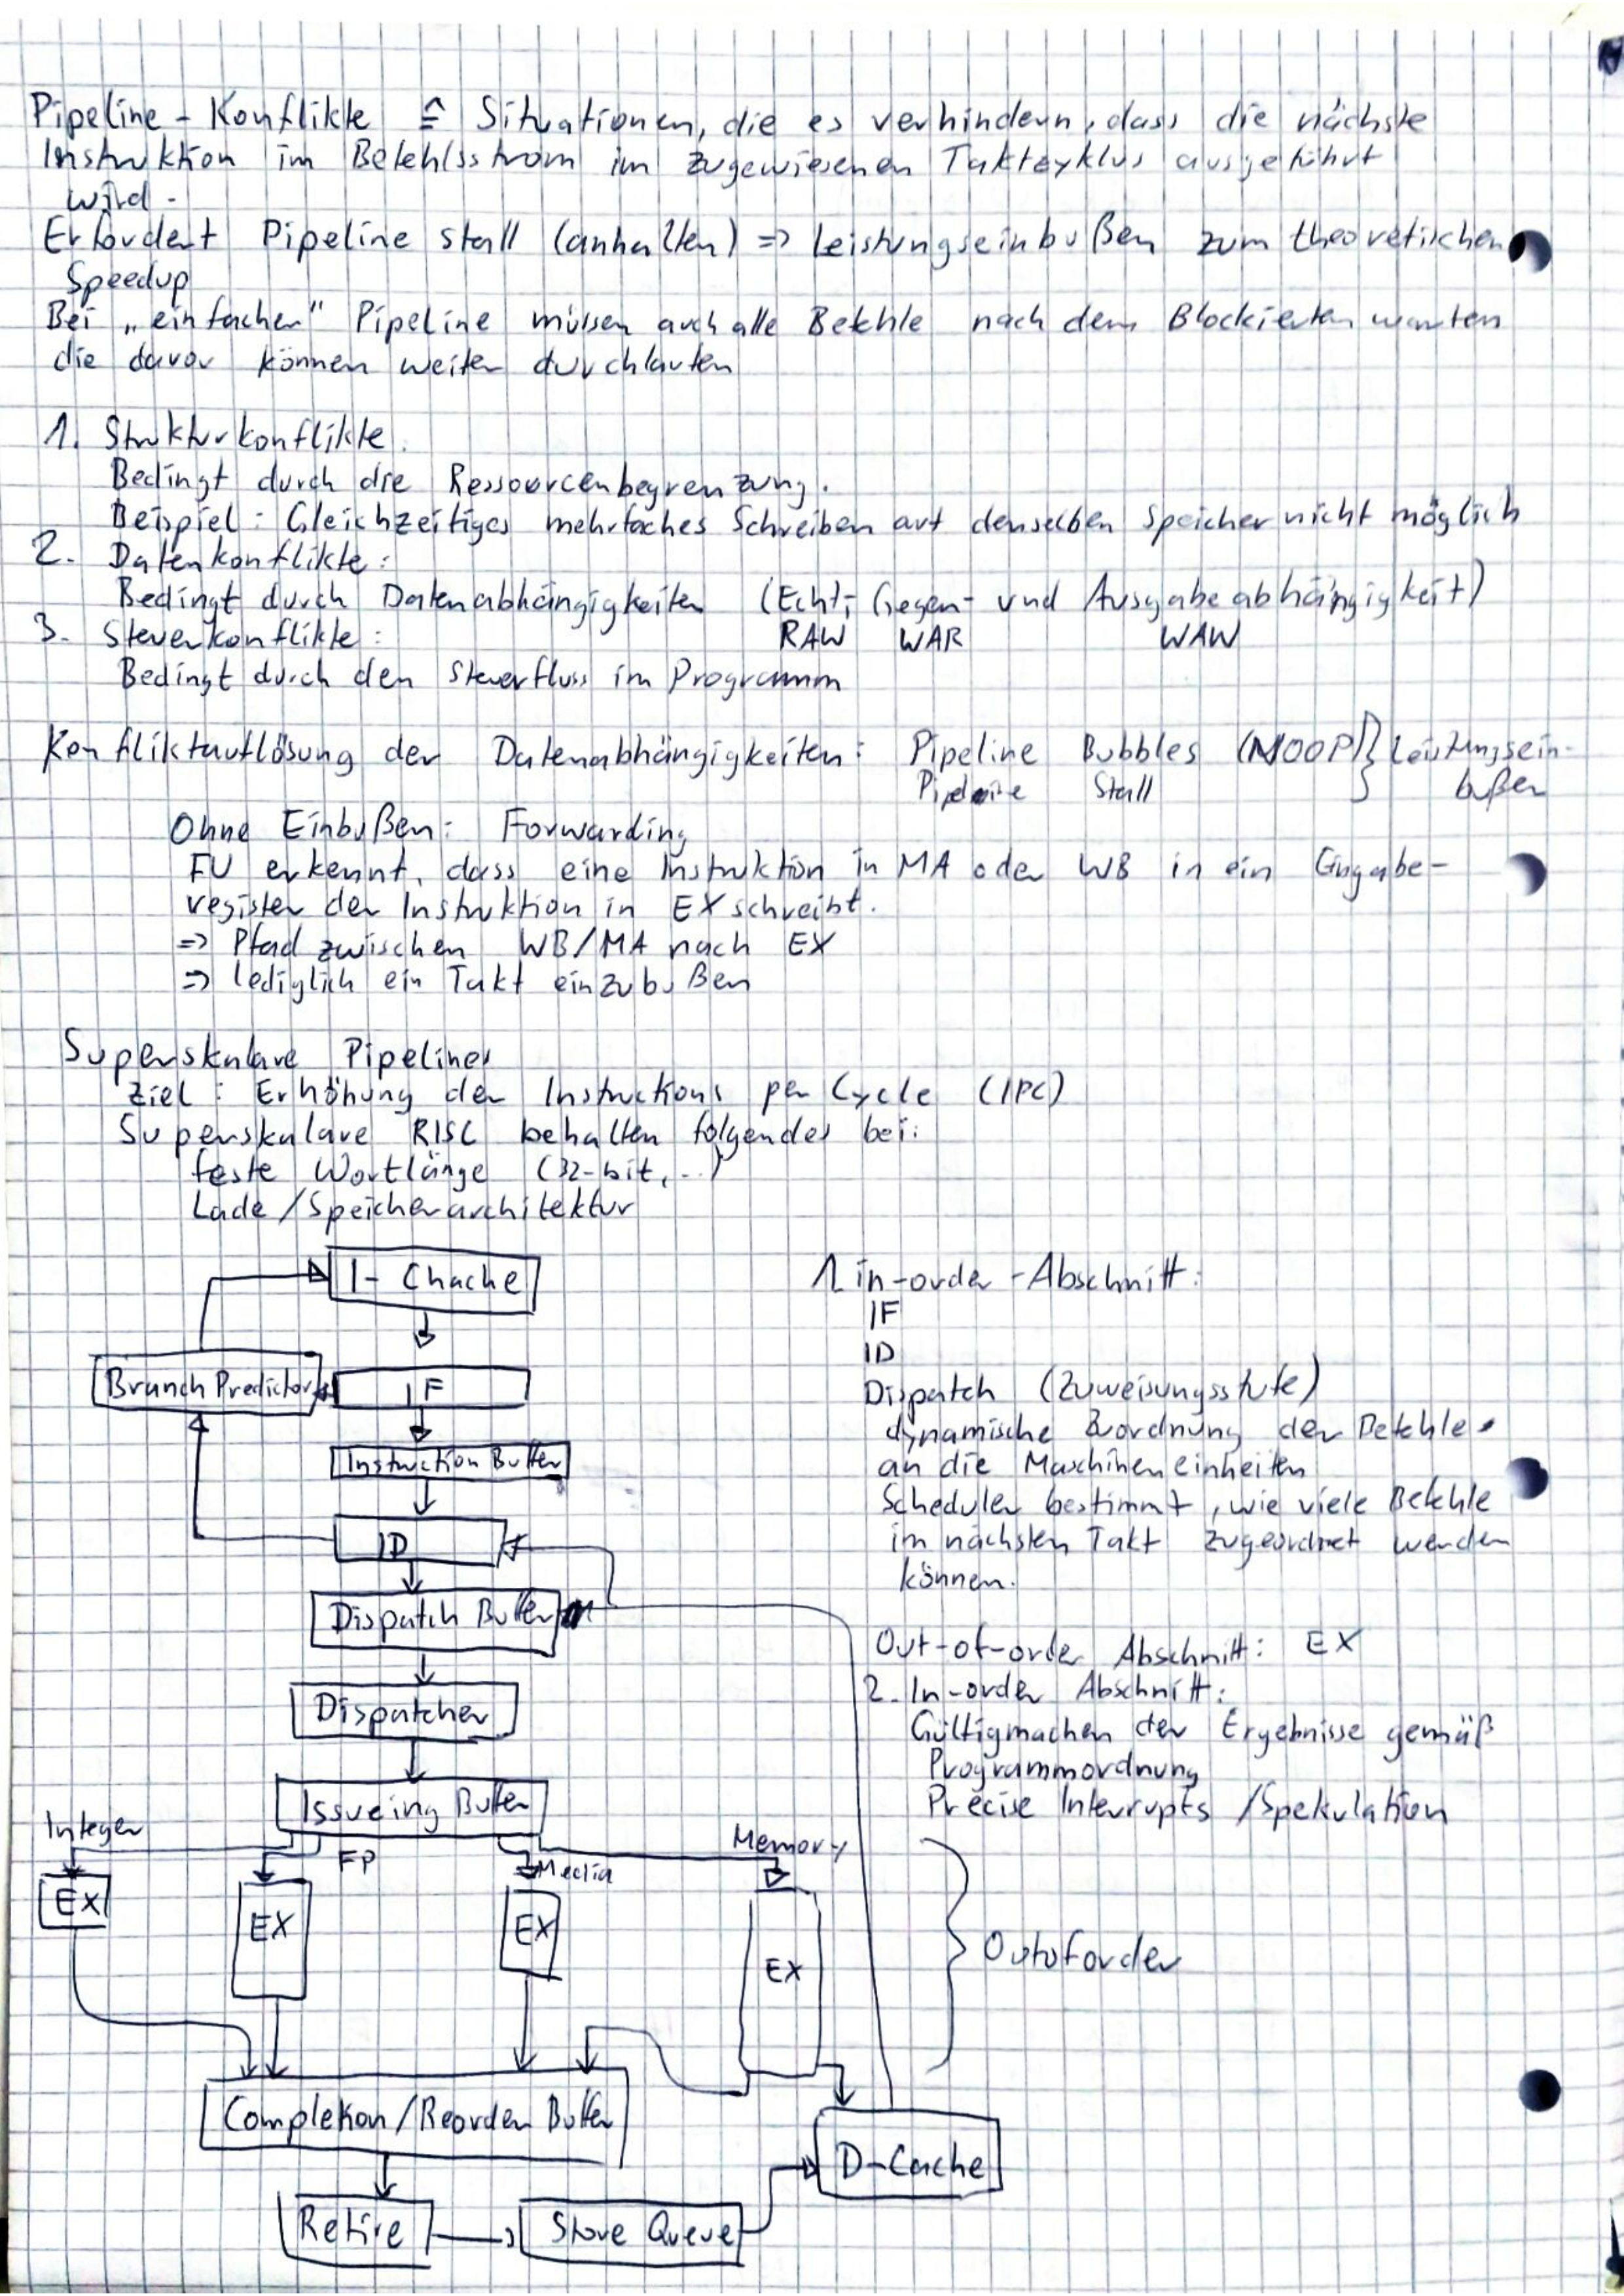 Pipeline - Konflikte ≙ Situationen, die es verhindern, dass die nächste
Instruktion im Befehlsstrom im zugewiesenen Taktzyklus ausgeführt
wird.
Erfordert Pipeline stall (anhalten) => Leistungseinbußen zum theoretischen
Speedup
Bei „einfacher" Pipeline müssen auch alle Befehle nach dem Blockierten warten
die davor können weiter durchlaufen
1. Strukturkonflikte:
Bedingt durch die Ressourcenbegrenzung.
Beispiel: Gleichzeitiges mehrfaches Schreiben auf denselben Speicher nicht möglich
2. Datenkonflikte:
Bedingt durch Datenabhängigkeiten (Echt-, Gegen- und Ausgabeabhängigkeit)
RAW WAR WAW
3. Steuerkonflikte:
Bedingt durch den Steuerfluss im Programm
Konfliktauflösung der Datenabhängigkeiten: Pipeline Bubbles (NOOP) } Leistungsein-
Pipeline Stall bußen
Ohne Einbußen: Forwarding
FU erkennt, dass eine Instruktion in MA oder WB in ein Eingabe-
register der Instruktion in EX schreibt.
=> Pfad zwischen WB/MA nach EX
=> lediglich ein Takt einzubußen
Superskalare Pipelines
Ziel: Erhöhung der Instructions per Cycle (IPC)
Superskalare RISC behalten folgendes bei:
feste Wortlänge (32-bit, ..)
Lade/Speicherarchitektur
I- Chache
Branch Predictor
IF
Instruction Buffer
ID
Dispatch Buffer
Dispatcher
Issueing Buffer
Integer
FP
Media
Memory
EX
EX
EX
EX
Outoforder
Completion/Reorder Buffer
D-Cache
Retire
Store Queue
1. in-order -Abschnitt:
IF
ID
Dispatch (Zuweisungsstufe)
dynamische Zuordnung der Befehle
an die Maschineneinheiten
Scheduler bestimmt, wie viele Befehle
im nächsten Takt zugeordnet werden
können.
Out-of-order Abschnitt: EX
2. In-order Abschnitt:
Gültigmachen der Ergebnisse gemäß
Programmordnung
Precise Interrupts /Spekulation